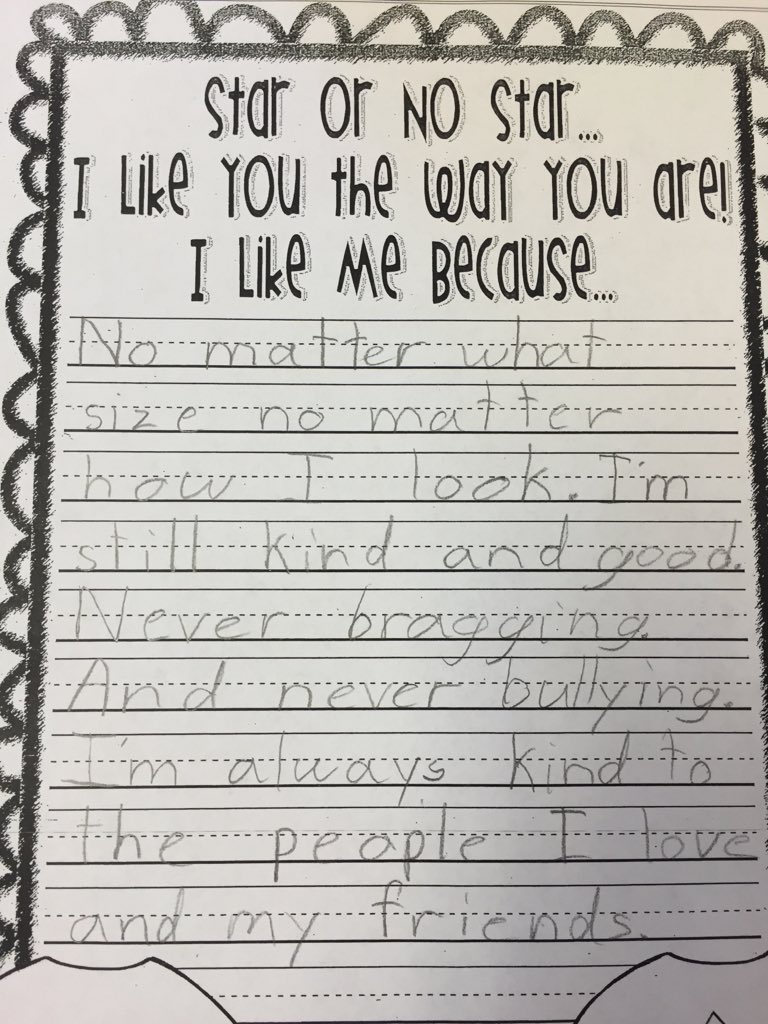 Star or No Star...
I Like You the Way You are!
I Like Me Because...
No matter what
size no matter
how I look. I'm
still kind and good.
Never bragging.
And never bullying.
I'm always kind to
the people I love
and my friends.